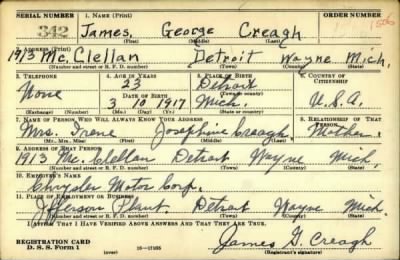 SERIAL NUMBER 1. NAME (Print) ORDER NUMBER
342 James, George Creagh
(First) (Middle) (Last)
2. ADDRESS (Print)
1913 Mc.Clellan Detroit Wayne Mich.
(Number and street or R. F. D. number) (Town) (County) (State)
3. TELEPHONE 4. AGE IN YEARS 5. PLACE OF BIRTH 6. COUNTRY OF CITIZENSHIP
None 23 Detroit
DATE OF BIRTH (Town or county)
3 10 1917 Mich. U.S.A.
(Exchange) (Number) (Mo.) (Day) (Yr.) (State or country)
7. NAME OF PERSON WHO WILL ALWAYS KNOW YOUR ADDRESS 8. RELATIONSHIP OF THAT PERSON
Mrs. Irene Josephine Creagh Mother.
(Mr., Mrs., Miss) (First) (Middle) (Last)
9. ADDRESS OF THAT PERSON
1913 Mc.Clellan Detroit Wayne Mich.
(Number and street or R. F. D. number) (Town) (County) (State)
10. EMPLOYER'S NAME
Chrysler Motor Corp.
11. PLACE OF EMPLOYMENT OR BUSINESS
Jefferson Plant. Detroit Wayne Mich.
(Number and street or R. F. D. number) (Town) (County) (State)
I AFFIRM THAT I HAVE VERIFIED ABOVE ANSWERS AND THAT THEY ARE TRUE.
REGISTRATION CARD James G. Creagh
D. S. S. Form 1 (over) 16—17105 (Registrant's signature)